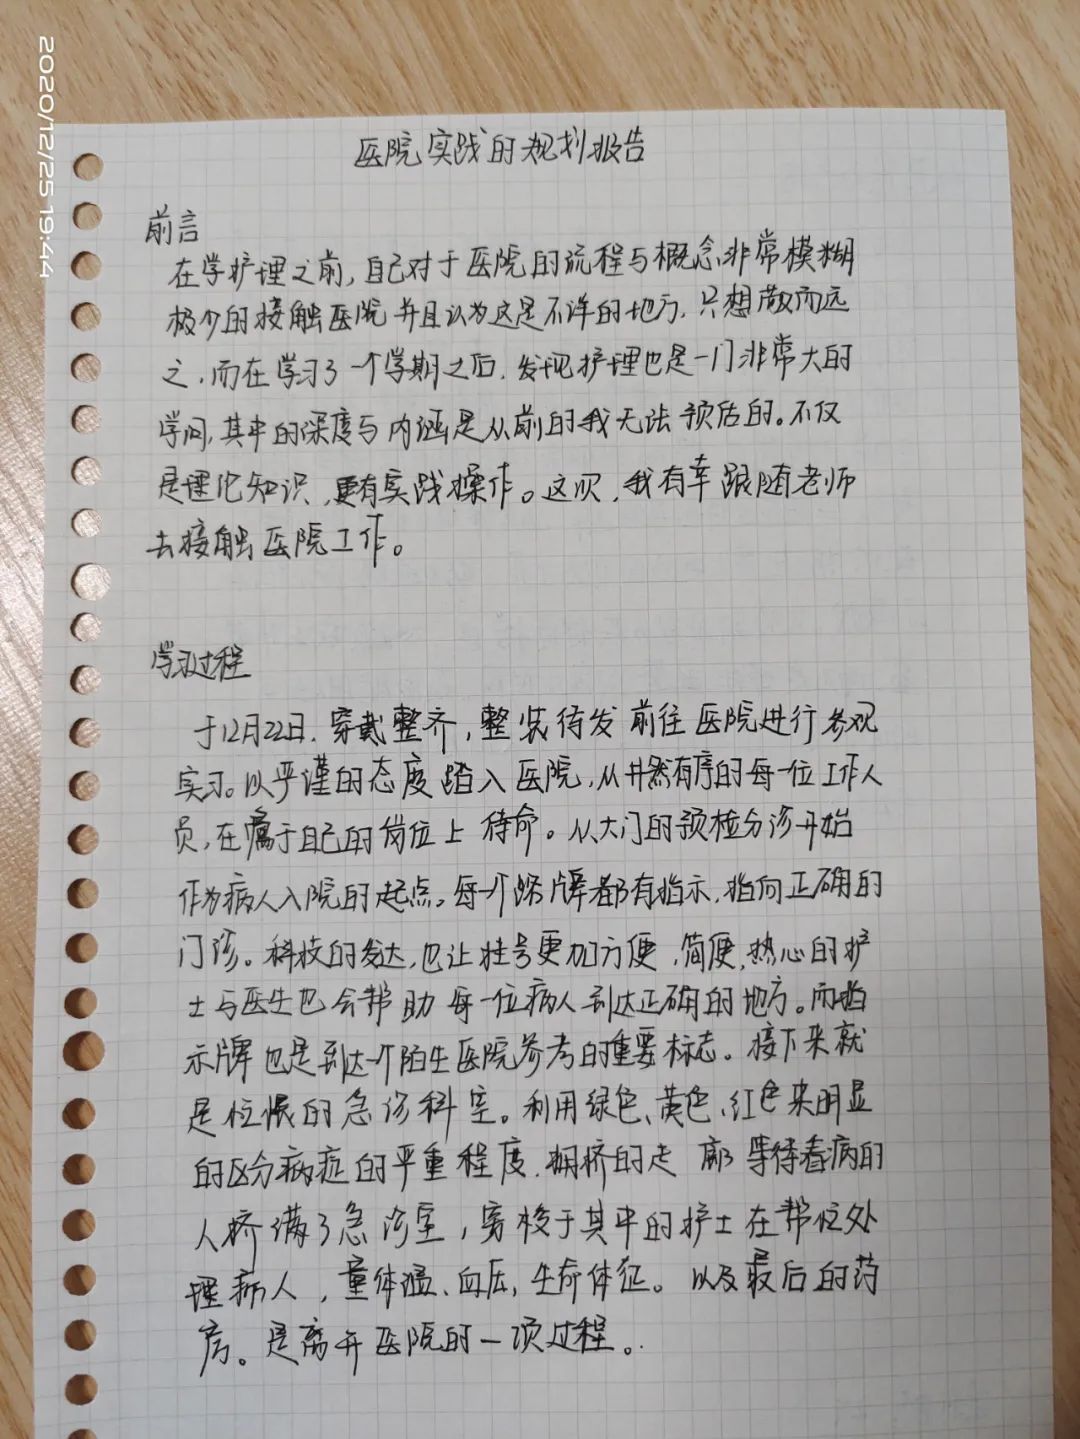 2020/12/25 19:44
医院实践的规划报告
前言
在学护理之前,自己对于医院的流程与概念非常模糊
极少的接触医院并且认为这是不详的地方,只想敬而远
之,而在学习了一个学期之后,发现护理也是一门非常大的
学问,其中的深度与内涵是从前的我无法预估的。不仅
是理论知识,更有实践操作。这次,我有幸跟随老师
去接触医院工作。
学习过程
于12月22日,穿戴整齐,整装待发前往医院进行参观
实习。以严谨的态度踏入医院,从井然有序的每一位工作人
员,在属于自己的岗位上待命。从大门的预检分诊开始
作为病人入院的起点。每一个路牌都有指示,指向正确的
门诊。科技的发达,也让挂号更加方便,简便,热心的护
士与医生也会帮助每一位病人到达正确的地方。而指
示牌也是到达一个陌生医院参考的重要标志。接下来就
是忙的急诊科室。利用绿色、黄色、红色来明显
的区分病症的严重程度,拥挤的走廊等待看病的
人挤满了急诊室,穿梭于其中的护士在帮忙处
理病人,量体温、血压,生命体征。以及最后的药
房。是离开医院的一项过程。